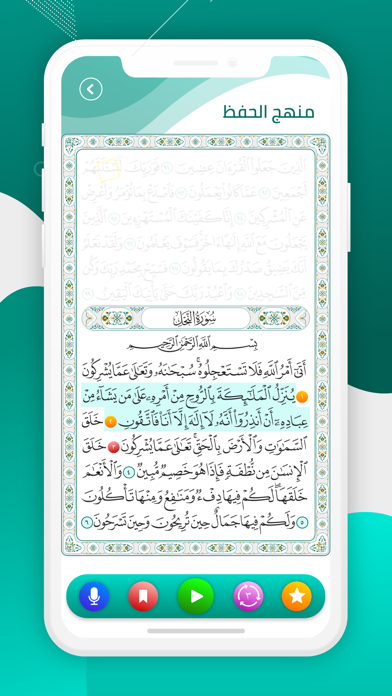 منهج الحفظ
ٱلَّذِينَ جَعَلُوا۟ ٱلْقُرْءَانَ عِضِينَ ٩١ فَوَرَبِّكَ لَنَسْـَٔلَنَّهُمْ
أَجْمَعِينَ ٩٢ عَمَّا كَانُوا۟ يَعْمَلُونَ ٩٣ فَٱصْدَعْ بِمَا تُؤْمَرُ وَأَعْرِضْ
عَنِ ٱلْمُشْرِكِينَ ٩٤ إِنَّا كَفَيْنَـٰكَ ٱلْمُسْتَهْزِءِينَ ٩٥ ٱلَّذِينَ
يَجْعَلُونَ مَعَ ٱللَّهِ إِلَـٰهًا ءَاخَرَ فَسَوْفَ يَعْلَمُونَ ٩٦ وَلَقَدْ نَعْلَمُ
أَنَّكَ يَضِيقُ صَدْرُكَ بِمَا يَقُولُونَ ٩٧ فَسَبِّحْ بِحَمْدِ رَبِّكَ وَكُن
مِّنَ ٱلسَّـٰجِدِينَ ٩٨ وَٱعْبُدْ رَبَّكَ حَتَّىٰ يَأْتِيَكَ ٱلْيَقِينُ ٩٩
سُورَةُ النَّحْلِ
بِسْمِ ٱللَّهِ ٱلرَّحْمَـٰنِ ٱلرَّحِيمِ
أَتَىٰٓ أَمْرُ ٱللَّهِ فَلَا تَسْتَعْجِلُوهُ سُبْحَـٰنَهُۥ وَتَعَـٰلَىٰ عَمَّا يُشْرِكُونَ
١ يُنَزِّلُ ٱلْمَلَـٰٓئِكَةَ بِٱلرُّوحِ مِنْ أَمْرِهِۦ عَلَىٰ مَن يَشَآءُ مِنْ
عِبَادِهِۦٓ أَنْ أَنذِرُوٓا۟ أَنَّهُۥ لَآ إِلَـٰهَ إِلَّآ أَنَا۠ فَٱتَّقُونِ ٢ خَلَقَ
ٱلسَّمَـٰوَٰتِ وَٱلْأَرْضَ بِٱلْحَقِّ تَعَـٰلَىٰ عَمَّا يُشْرِكُونَ ٣ خَلَقَ
ٱلْإِنسَـٰنَ مِن نُّطْفَةٍ فَإِذَا هُوَ خَصِيمٌ مُّبِينٌ ٤ وَٱلْأَنْعَـٰمَ
خَلَقَهَا لَكُمْ فِيهَا دِفْءٌ وَمَنَـٰفِعُ وَمِنْهَا تَأْكُلُونَ
٥ وَلَكُمْ فِيهَا جَمَالٌ حِينَ تُرِيحُونَ وَحِينَ تَسْرَحُونَ ٦
٣